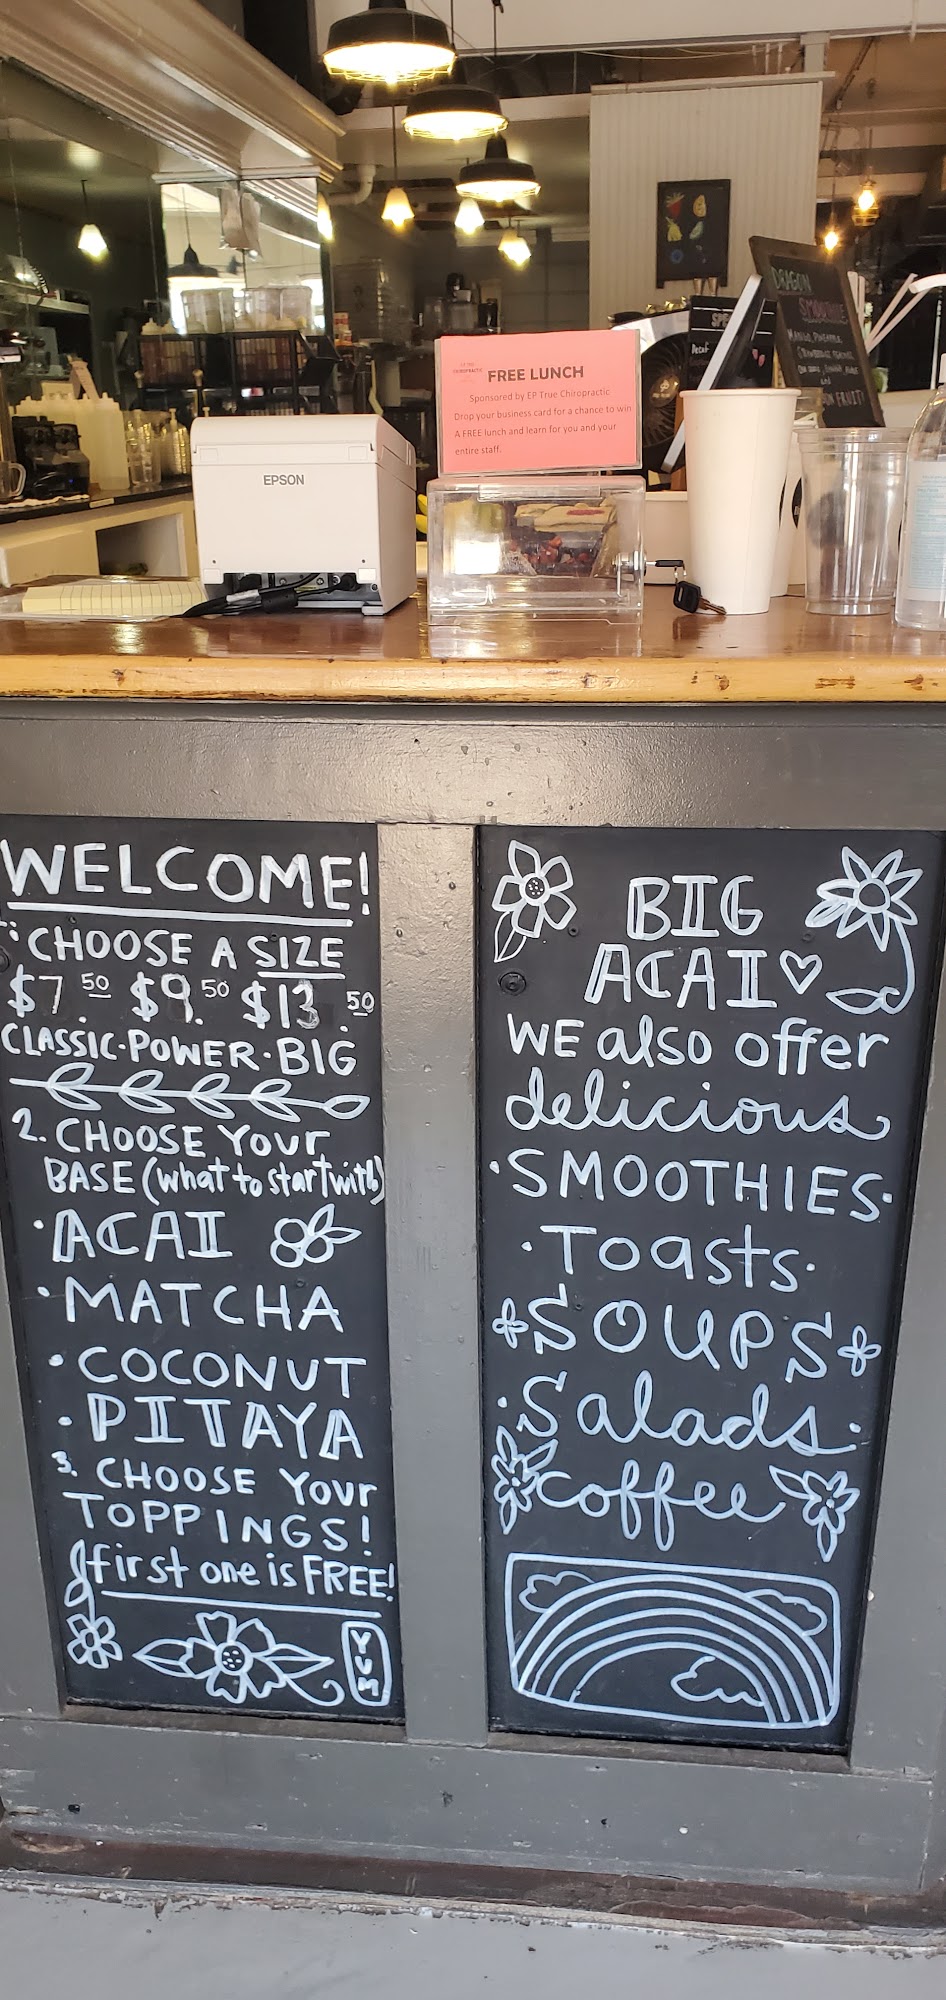 FREE LUNCH
Sponsored by EP True Chiropractic
Drop your business card for a chance to win
A FREE lunch and learn for you and your
entire staff.
EPSON
DRAGON
SMOOTHIE
MANGO, PINEAPPLE,
Decaf
FRUIT!
WELCOME!
CHOOSE A SIZE
$7.50 $9.50 $13.50
CLASSIC·POWER·BIG
2. CHOOSE YOUR
BASE (what to start with)
·ACAI
·MATCHA
·COCONUT
·PITAYA
3. CHOOSE YOUR
TOPPINGS!
first one is FREE!
YUM
BIG
ACAI♡
WE also offer
delicious
·SMOOTHIES·
·Toasts·
SOUPS
·Salads·
coffee